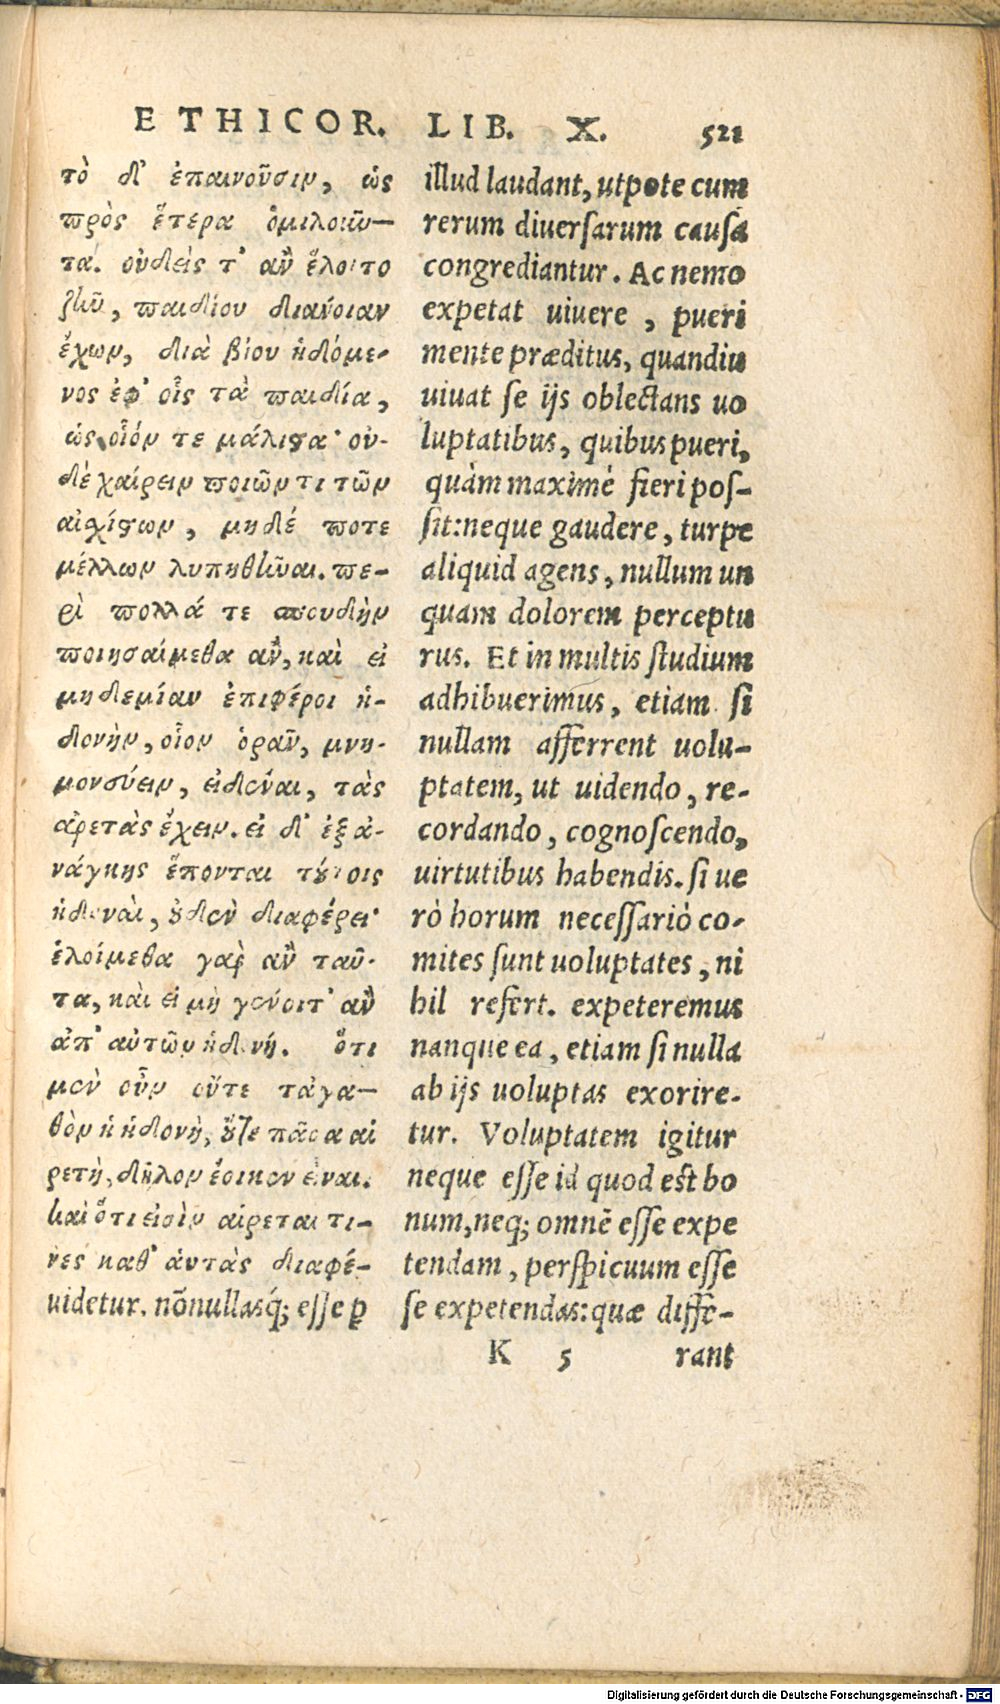 ETHICOR. LIB. X. 521
τὸ δ' ἐπαινοῦσιν, ὡς
πρὸς ἕτερα ὁμιλοιῶν—
τα. οὐδεὶς τ' ἂν ἕλοιτο
ζῆν, παιδίου διάνοιαν
ἔχων, διὰ βίου ἡδόμε-
νος ἐφ' οἷς τὰ παιδία,
ὡς οἷόν τε μάλιστα· οὐ-
δὲ χαίρειν ποιῶν τι τῶν
αἰσχίστων, μηδέ ποτε
μέλλων λυπηθῆναι. πε-
ρὶ πολλά τε σπουδὴν
ποιησαίμεθα ἂν, καὶ εἰ
μηδεμίαν ἐπιφέροι ἡ-
δονὴν, οἷον ὁρᾶν, μνη-
μονεύειν, εἰδέναι, τὰς
ἀρετὰς ἔχειν. εἰ δ' ἐξ ἀ-
νάγκης ἕπονται τούτοις
ἡδοναὶ, οὐδὲν διαφέρει·
ἑλοίμεθα γὰρ ἂν ταῦ-
τα, καὶ εἰ μὴ γένοιτ' ἂν
ἀπ' αὐτῶν ἡδονή. ὅτι
μὲν οὖν οὔτε τἀγα—
θὸν ἡ ἡδονὴ, οὔτε πᾶσα αἱ
ρετὴ, δῆλον ἔοικεν εἶναι.
καὶ ὅτι εἰσὶν αἱρεταί τι-
νες καθ' αὑτὰς διαφέ-
uidetur. nōnullasq́; esse ꝑ
illud laudant, utpote cum
rerum diuersarum causa
congrediantur. Ac nemo
expetat uiuere, pueri
mente præditus, quandiu
uiuat se ijs oblectans uo
luptatibus, quibus pueri,
quàm maximè fieri pos-
sit: neque gaudere, turpe
aliquid agens, nullum un
quam dolorem perceptu
rus. Et in multis studium
adhibuerimus, etiam si
nullam afferrent uolu-
ptatem, ut uidendo, re-
cordando, cognoscendo,
uirtutibus habendis. si ue
rò horum necessariò co-
mites sunt uoluptates, ni
hil refert. expeteremus
nanque ea, etiam si nulla
ab ijs uoluptas exorire-
tur. Voluptatem igitur
neque esse id quod est bo
num, neq; omnē esse expe
tendam, perspicuum esse
se expetendas: quæ diffe-
K 5 rant
Digitalisierung gefördert durch die Deutsche Forschungsgemeinschaft - DFG